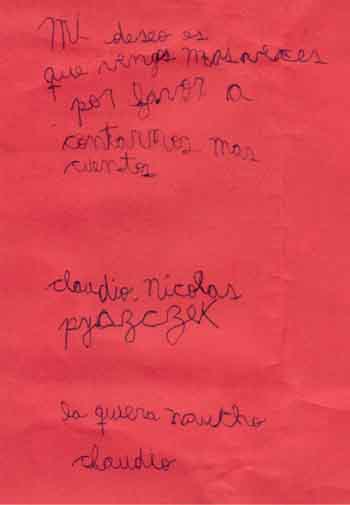 Mi deseo es
que venga mas veces
por favor a
contarnos mas
cuentos
claudio. Nicolas
pyszczek
la quiera
claudio